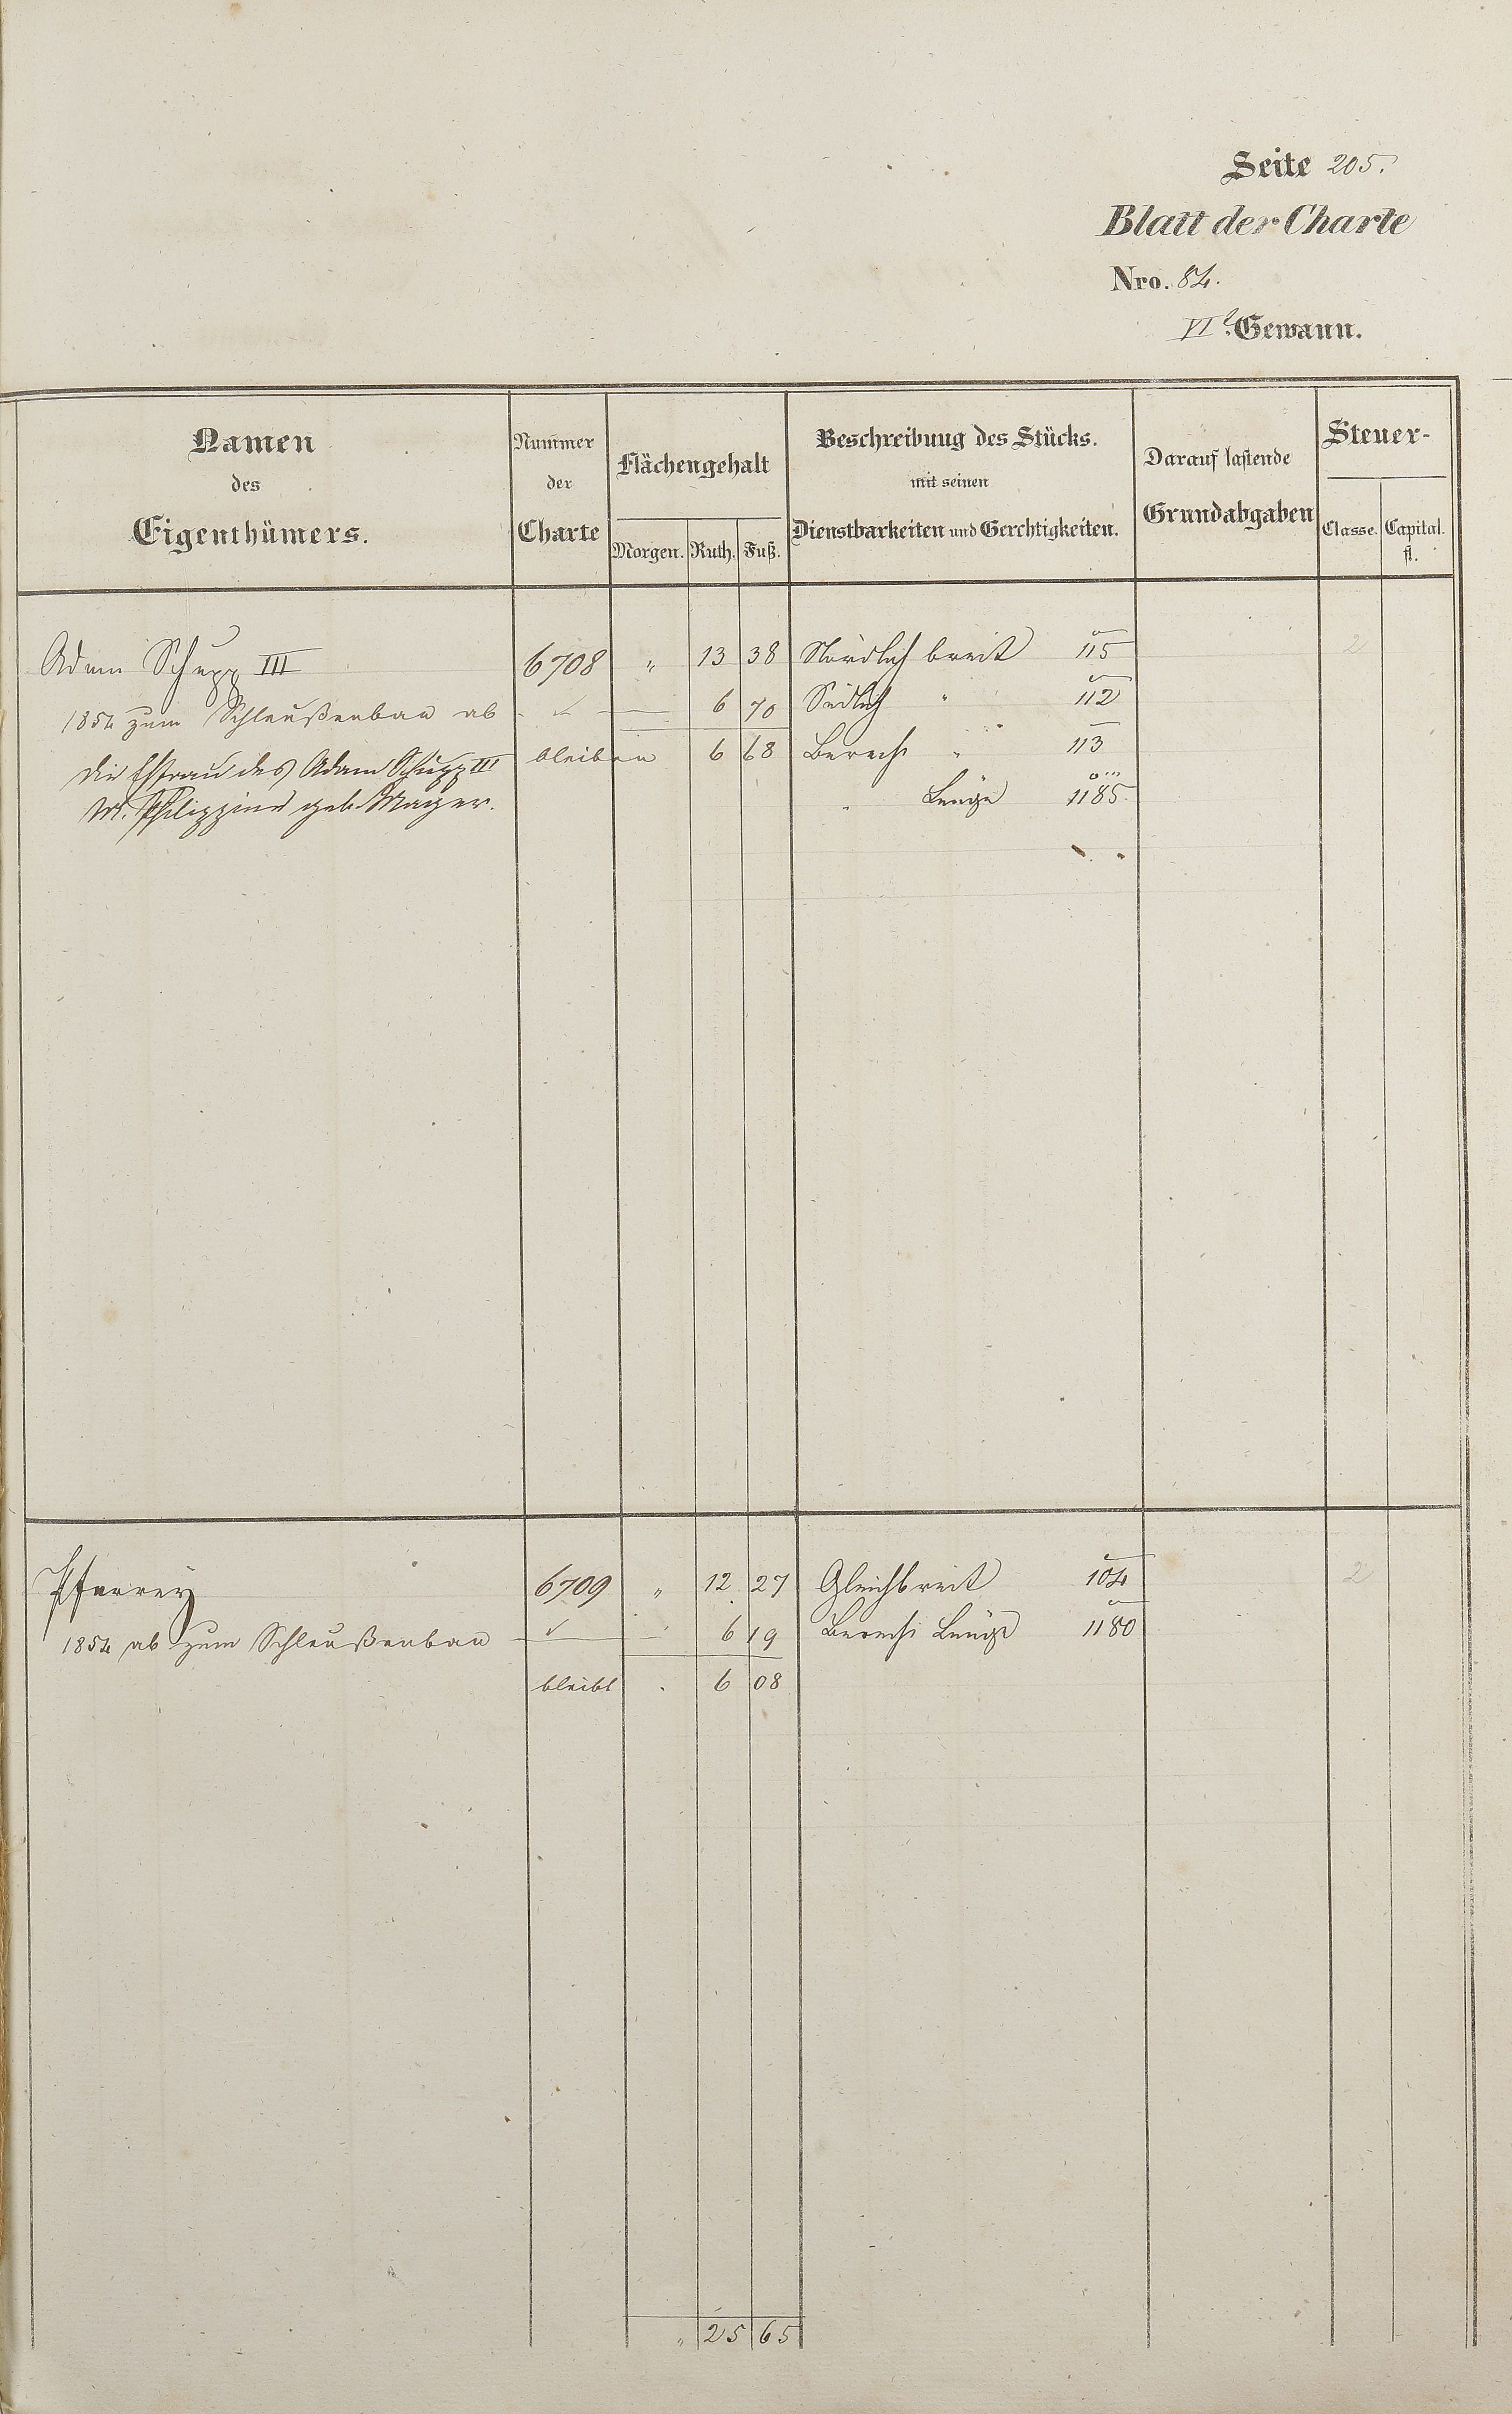 Seite 205.
Blatt der Charte
Nro. 84.
VIt. Gewann.
Namen des Eigenthümers. Nummer der Charte Flächengehalt Morgen. Ruth. Fuß. Beschreibung des Stücks. mit seinen Dienstbarkeiten und Gerchtigkeiten. Darauf lastende Grundabgaben Steuer- Classe. Capital. fl.
Adam Schupp III 6708 " 13 38 Nördlich breit 115 2
1854 zum Schleußenbau ab 6 70 Südlich " 112
Die Ehfrau des Adam Schupp III bleiben 6 68 Berech " 113
M. Philippine geb. Mayer. " Länge 1185
Pfarrey 6709 " 12 27 Gleichbreit 104 2
1854 ab zum Schleußenbau 6 19 Berech Länge 1180
bleibt 6 08
" 25 65